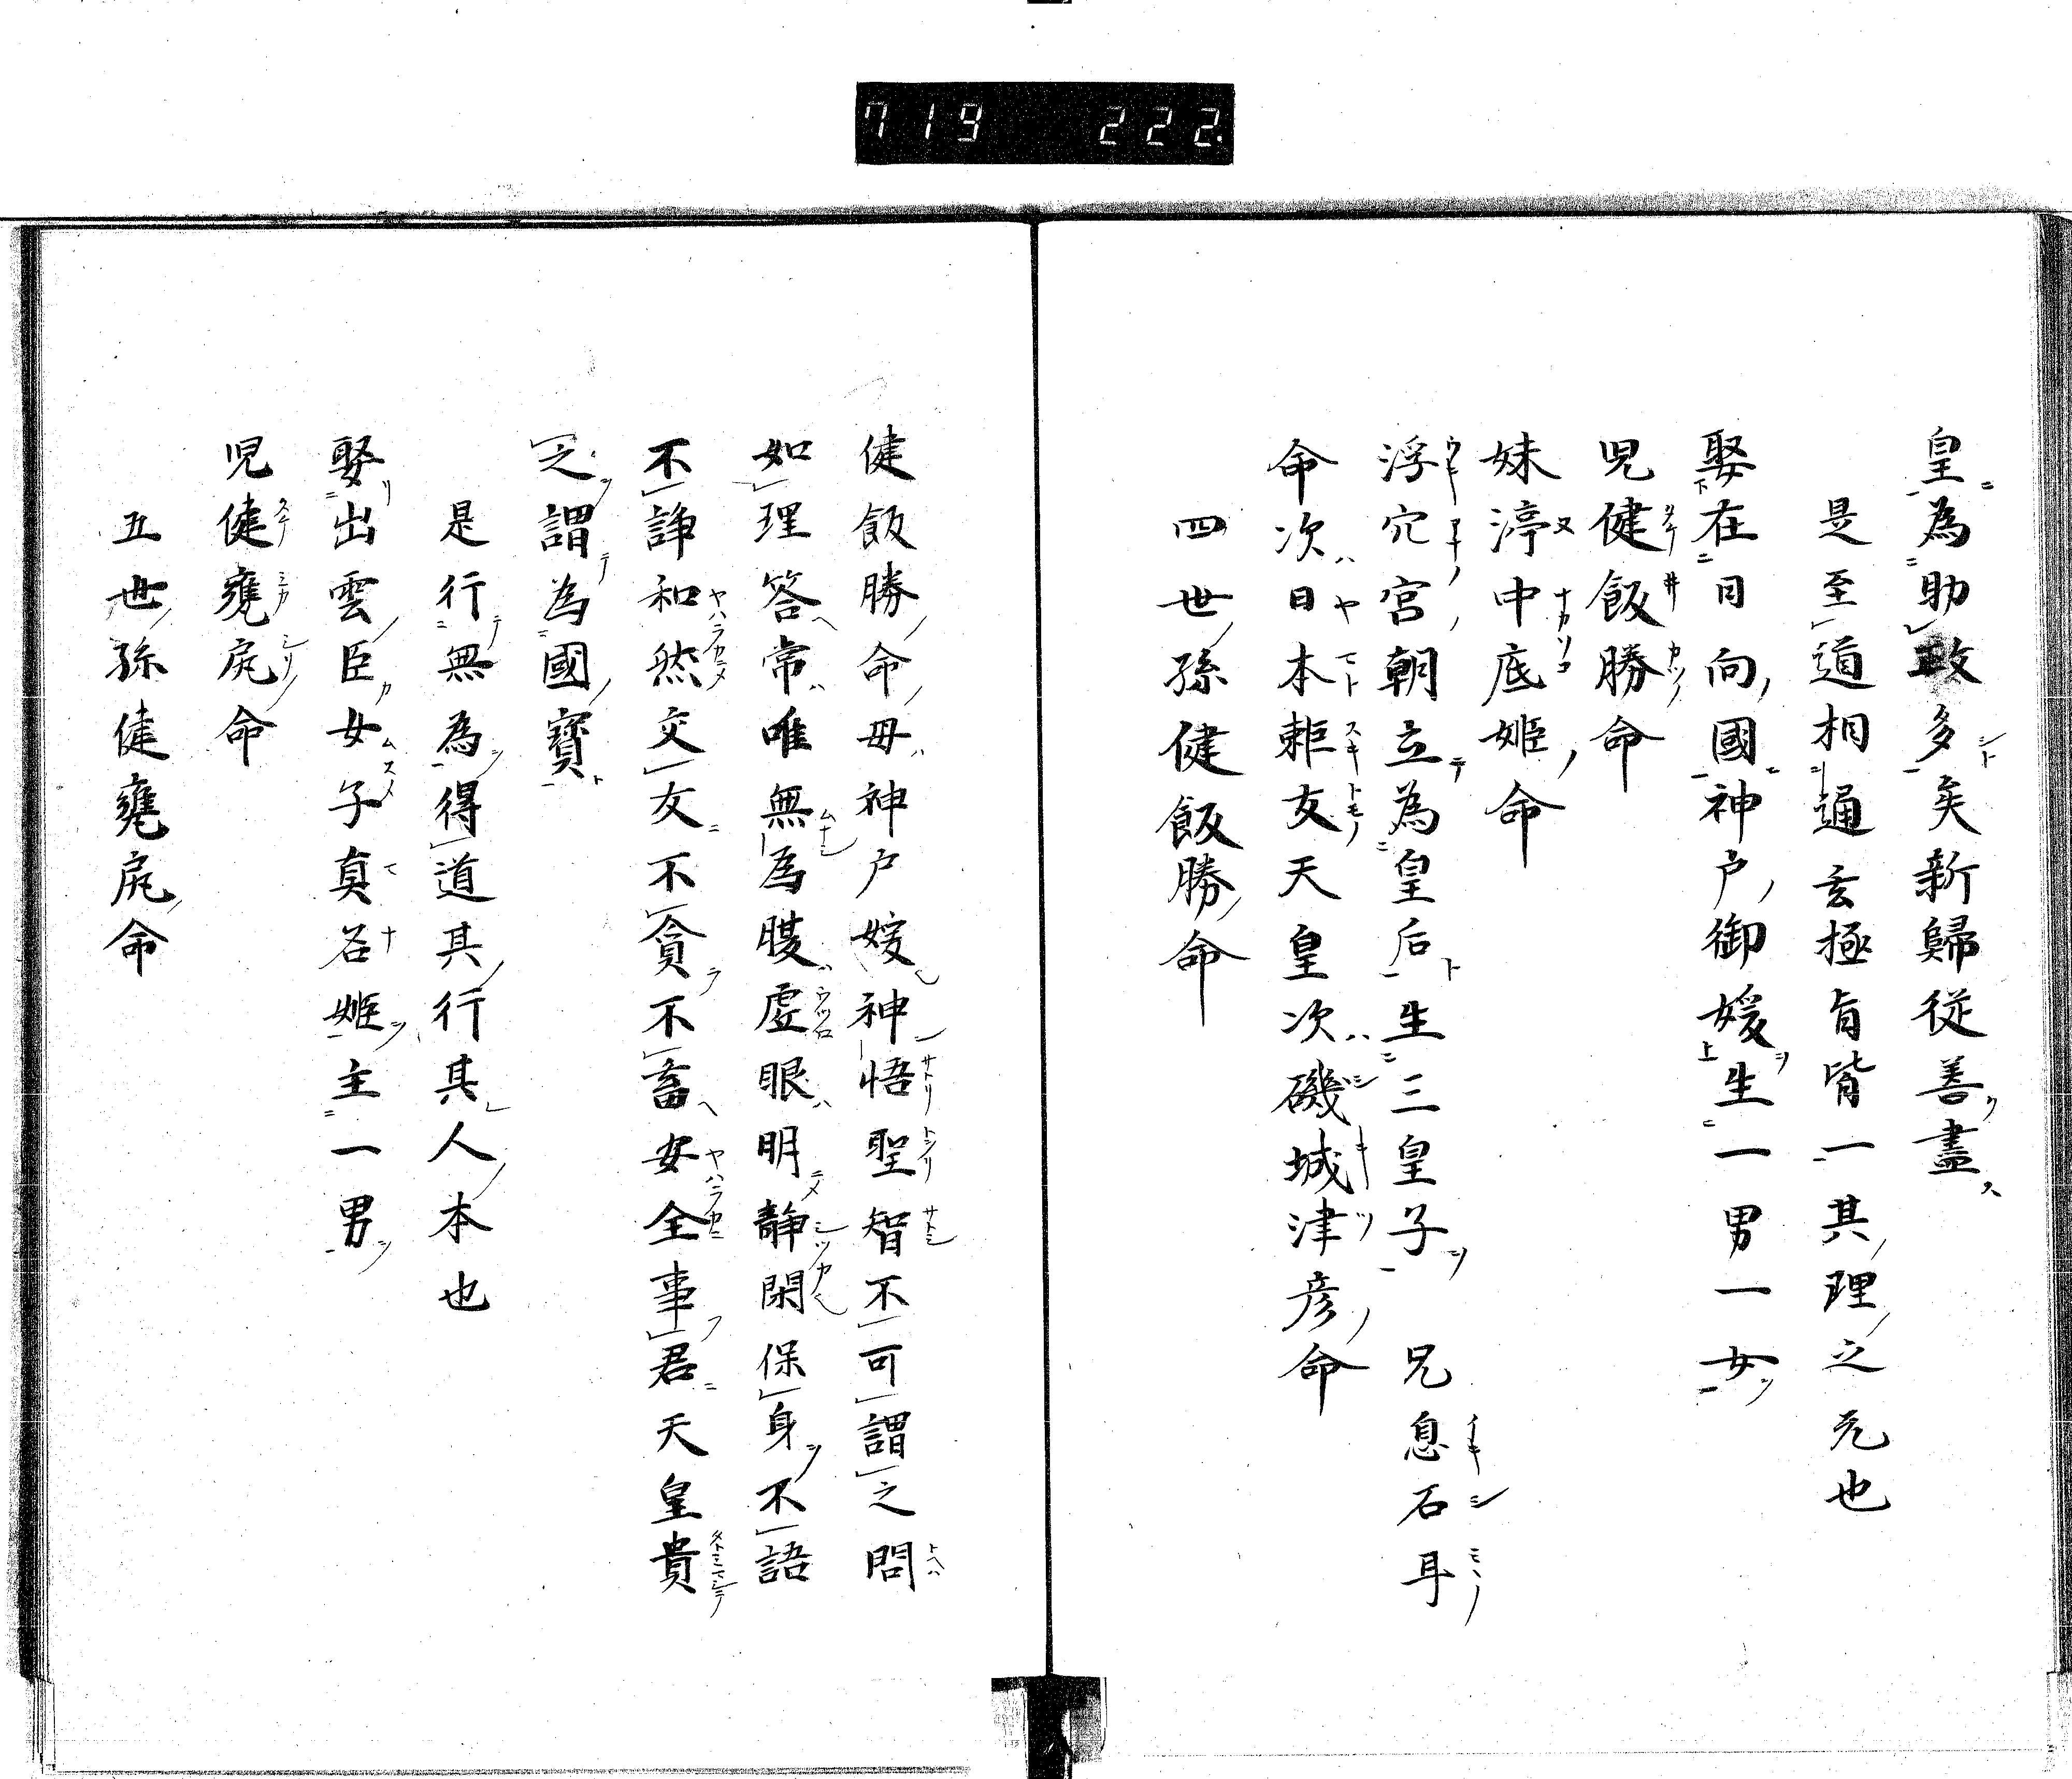 719 222
皇為助政多矣新歸従善盡
是至道相通玄極旨皆一其理之元也
娶在日向國神戸御媛生一男一女
児健飯勝命
妹渟中底姫命
浮穴宮朝立為皇后生三皇子 兄息石耳
命次日本耟友天皇次磯城津彦命
四世孫健飯勝命
健飯勝命母神戸媛神悟聖智不可謂之問
如理答常唯無為腹虚眼明静閑保身不語
不諍和然交友不貪不畜安全事君天皇貴
之謂為國寳
是行無為得道其行其人本也
娶出雲臣女子真名姫主一男
児健甕尻命
五世孫健甕尻命